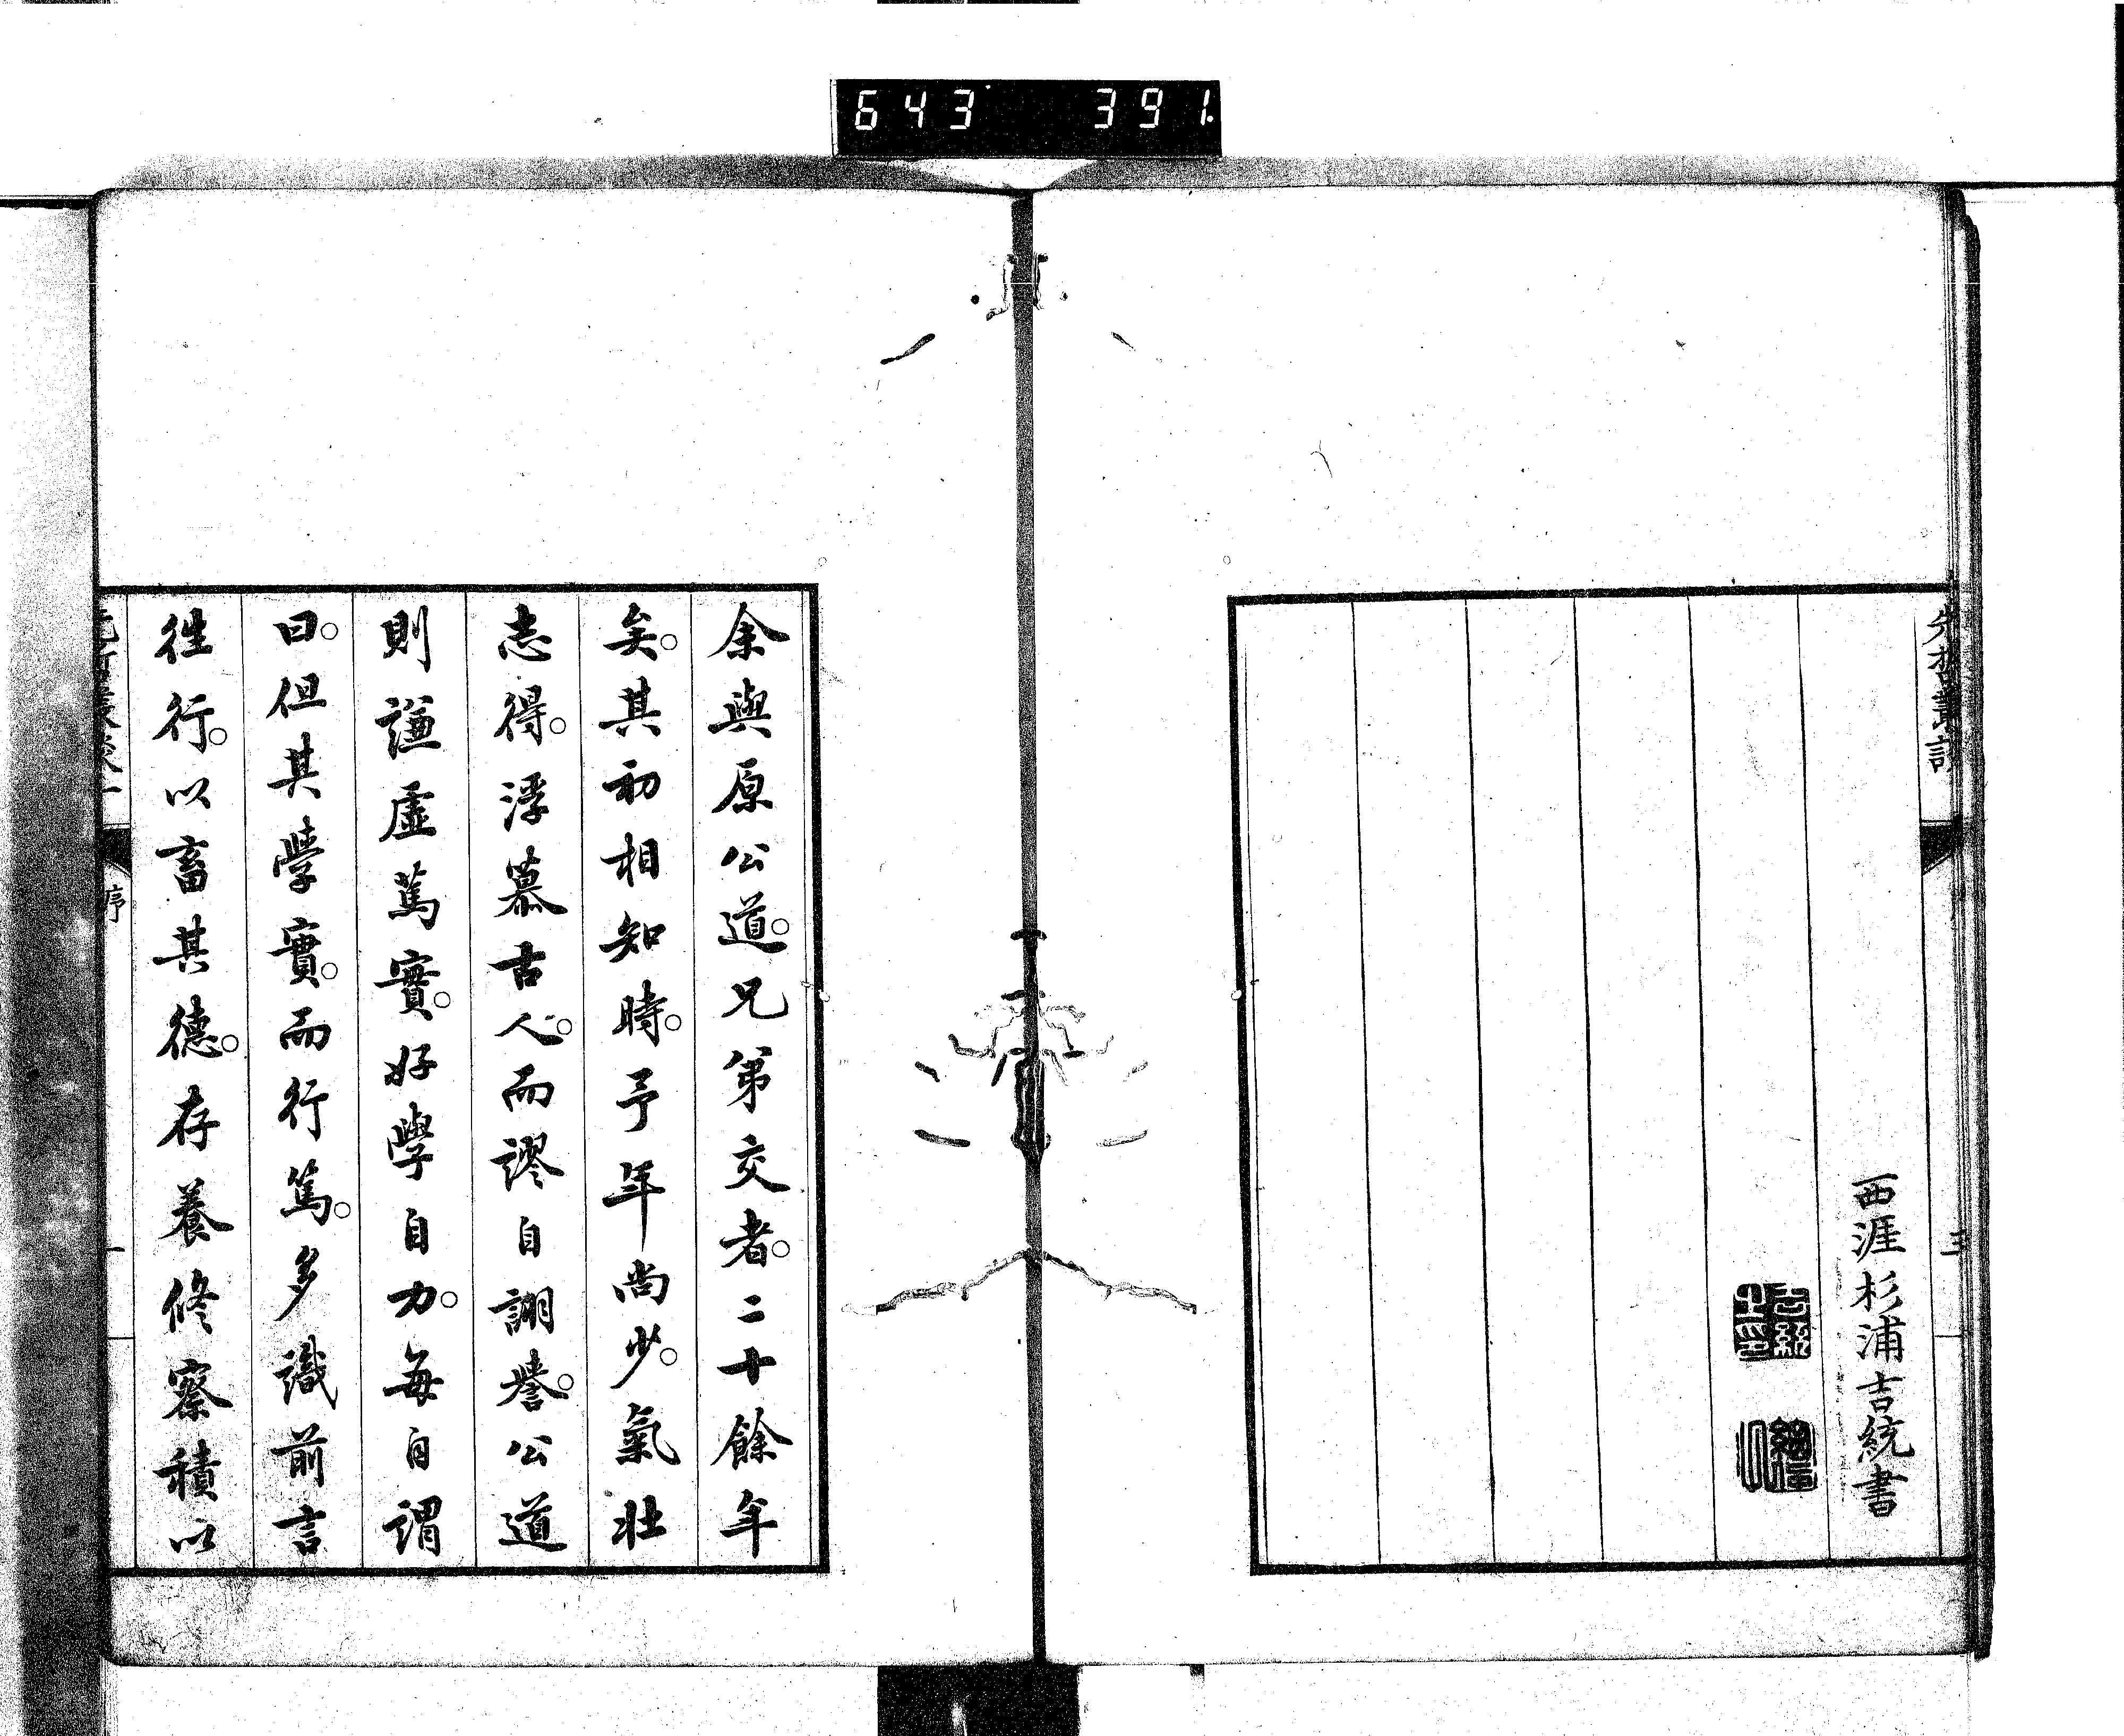 643 391
先哲叢談
三
西涯杉浦吉統書
余與原公道。兄弟交者。二十餘年
矣。其初相知時。予年尚少。氣壯
志得。浮慕古人。而謬自詡譽。公道
則謙虛篤實。好學自力。每自謂
曰。但其學實。而行篤。多識前言
徃行。以畜其德。存養修察積以
序
一